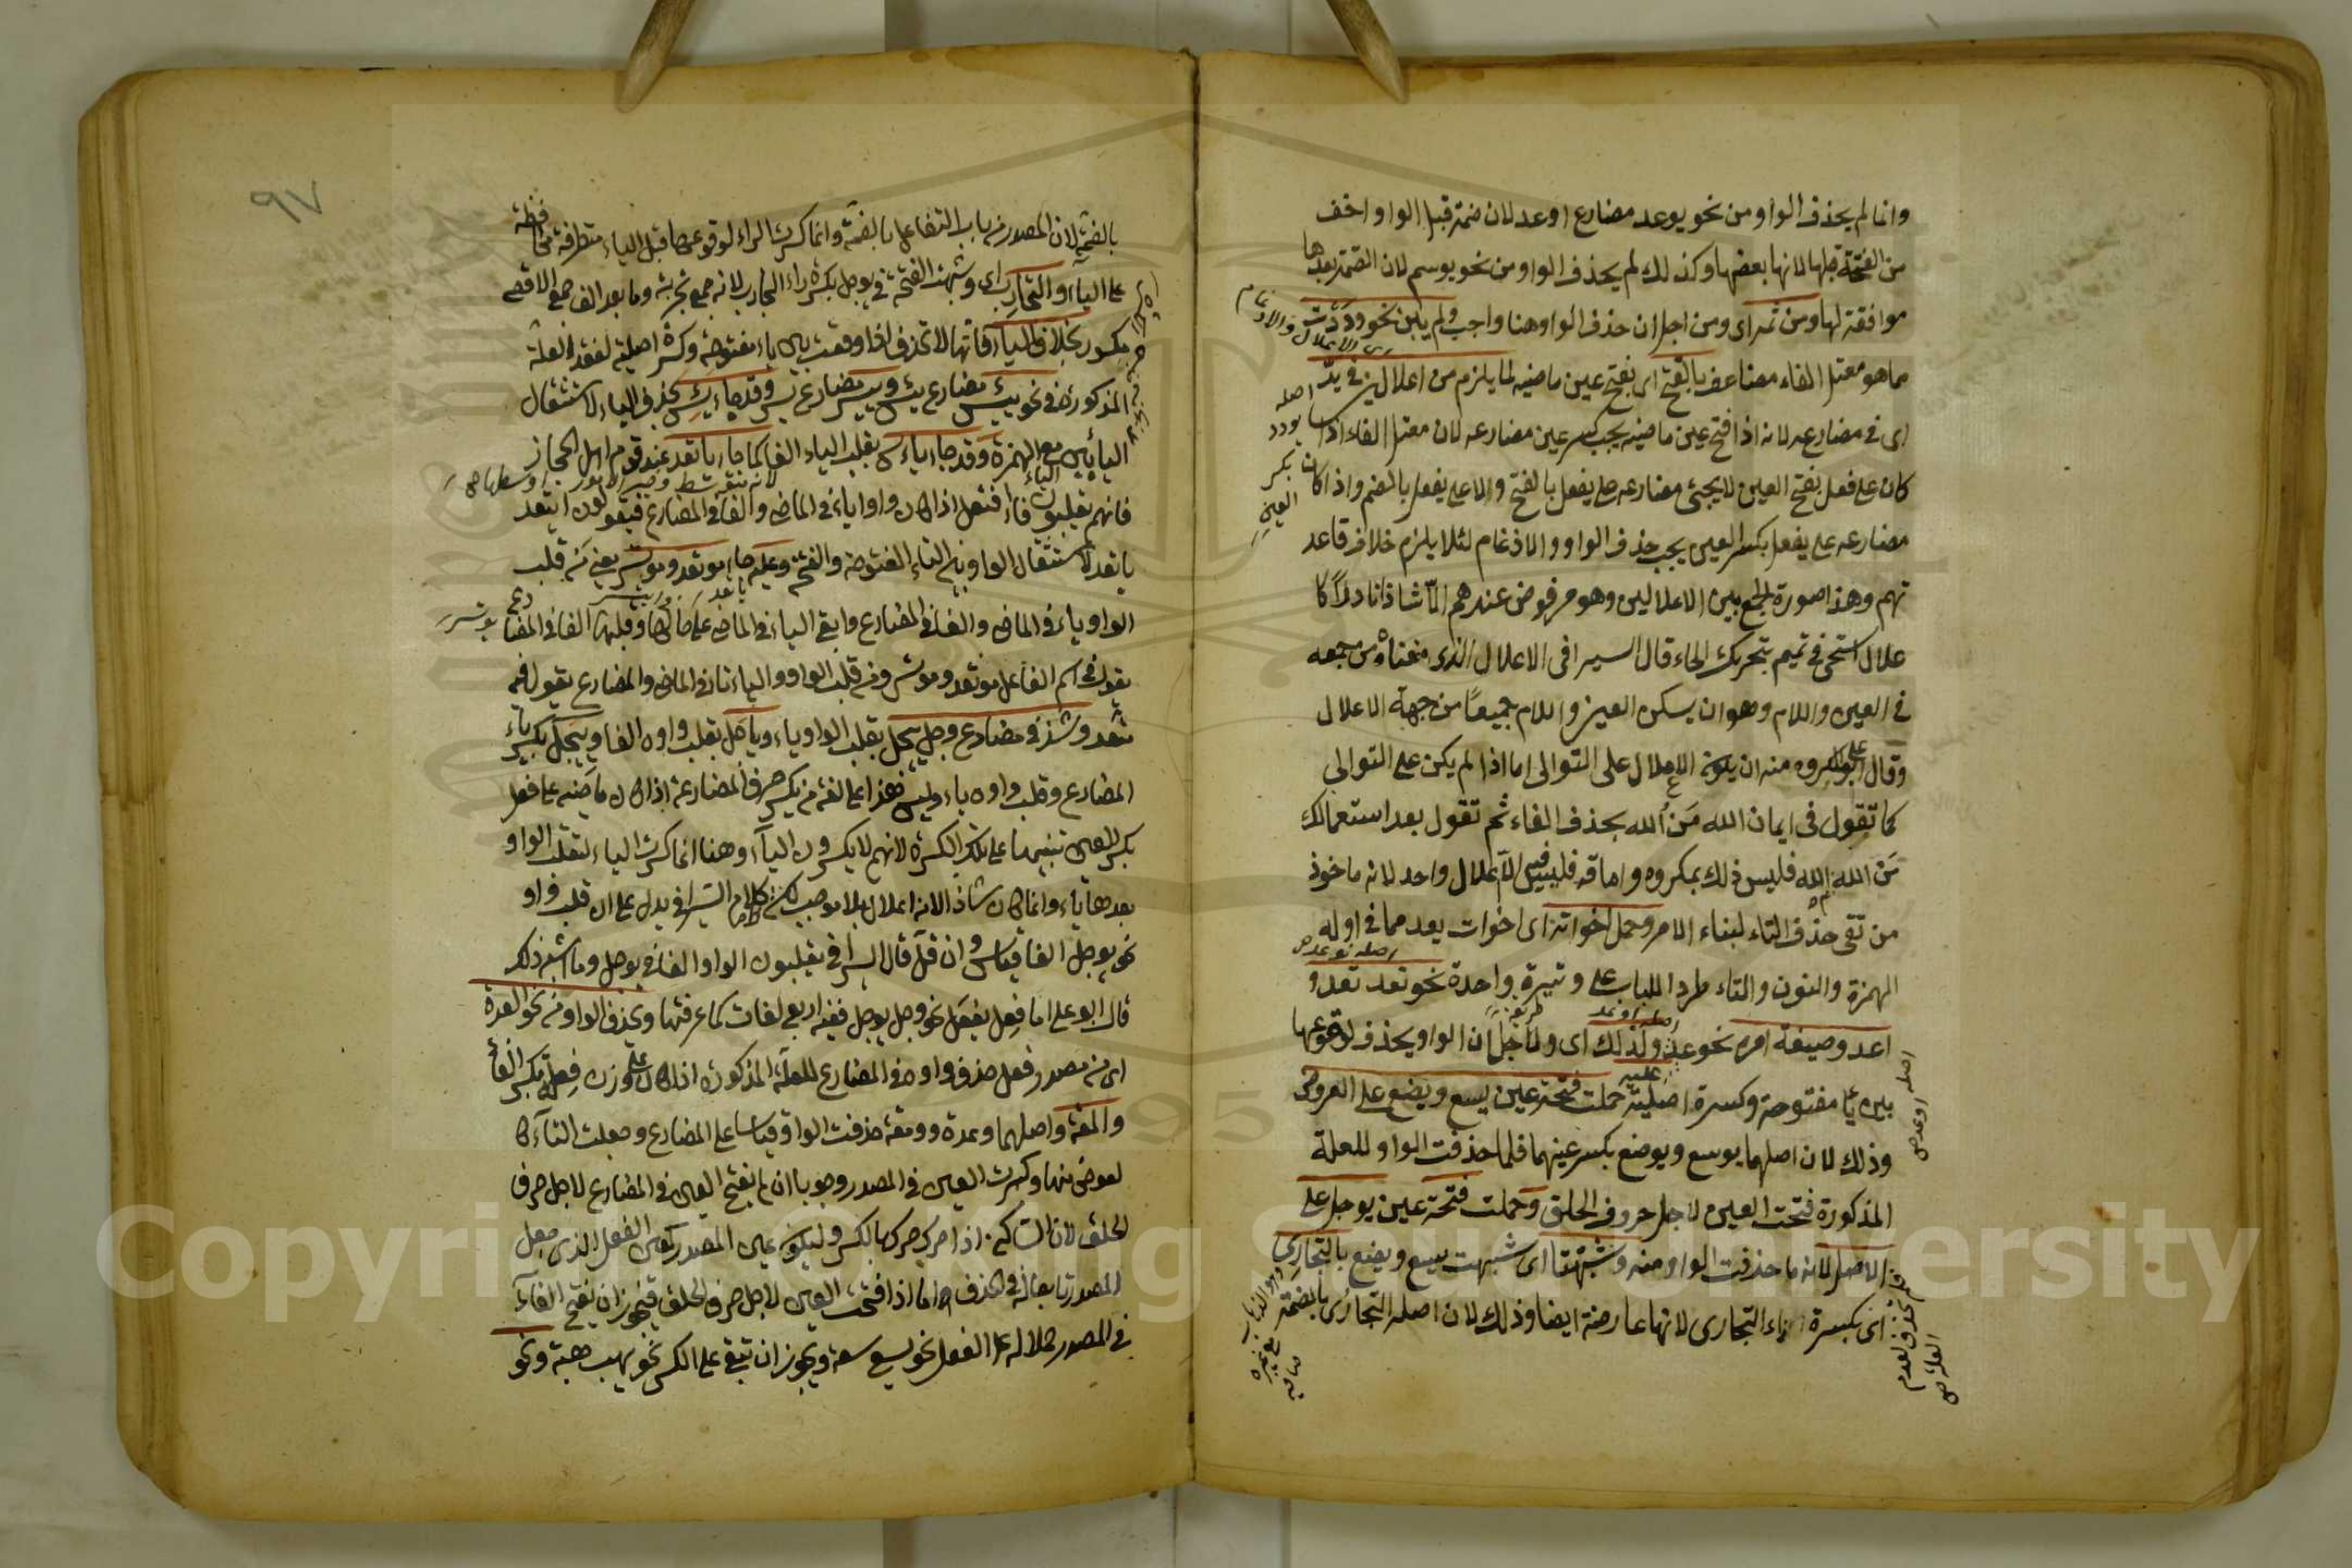 وانما لم يحذف الواو من نحو يوعد مضارع اوعد لان ضمة قبل الواو اخف
من الفتحة قبلها لانها بعضها وكذلك لم يحذف الواو من نحو يوسم لان الضمة بعدها
موافقة لها ومن ثمه اى ومن اجل ان حذف الواو هنا واجب ولم يبن نحو وددت
مما هو معتل الفاء مضاعف بالفتح اى بفتح عين ماضيه لما يلزم من اعلالين في يد
اى فى مضارعه لانه اذا فتح عين ماضيه يجب كسر عين مضارعه لان معتل الفاء اذا
كان على فعل بفتح العين لا يجئ مضارعه على يفعل بالفتح ولا على يفعل بالضم واذا كان
مضارعه على يفعل بكسر العين يجب حذف الواو والادغام لئلا يلزم خلاف قاعد
تهم وهذا صورة الجمع بين الاعلالين وهو مرفوض عندهم الا شاذا نادرا كا
علال استحى فى تميم بتحريك الحاء قال السيرافى الاعلال الذى منعناه من جمعه
فى العين واللام وهو ان يسكن العين واللام جميعا من جهة الاعلال
وقال ابو على المكروه منه ان يكون الاعلال على التوالى اما اذا لم يكن على التوالى
كما تقول فى ايمان الله من الله بحذف الفاء ثم تقول بعد استعمالك
من الله م الله فليس ذلك بمكروه واما قه فليس فيه الا اعلال واحد لانه ماخوذ
من تقى حذف التاء لبناء الامر وحمل اخواته اى اخوات يعد مما فى اوله
الهمزة والنون والتاء طردا للباب على وتيرة واحدة نحو نعد تعد و
اعد وصيغة امره نحو عد ولذلك اى ولاجل ان الواو يحذف لوقوعها
بين ياء مفتوحة وكسرة اصلية حملت فتحة عين يسع ويضع على العروض
وذلك لان اصلهما يوسع ويوضع بكسر عينهما فلما حذفت الواو للعلة
المذكورة فتحت العين لاجل حروف الحلق وحملت فتحة عين يوجل على
الاصل لانه ما حذفت الواو منه وشبهتا اى شبهت يسع ويضع بالتجارى
اى بكسرة راء التجارى لانها عارضة ايضا وذلك لان اصله التجارى بالضمة
اصله تو عد
اصله اوعد
طريقة
اصله
يودد
بكسر
العين
٩٧
بالضمة لان المصدر من باب التفاعل بالضمة وانما كسرت الراء لوقوعها قبل الياء متطرفة
على الياء والتجارب اى وشبهت الفتحة فى يوجل بكسرة راء التجارب لانه جمع تجربة وما بعد الف جمع الاقصى
مكسور بخلاف الياء فانها لا تحذف اذا وقعت بين ياء مفتوحة وكسرة اصلية لفقد العلة
المذكورة فى نحو ييئس مضارع يئس وييسر مضارع يسر وقد جاء يئس بحذف الياء لاستثقال
اليائين مع الهمزة وقد جاء ياءس بقلب الياء الفا كما جاء ياتعد عند قوم اهل الحجاز
فانهم يقلبون فاء افتعل اذا كان واوا ياء فى الماضى والفا فى المضارع فيقولون ايتعد
ياتعد لاستثقال الواو بين التاء المفتوحة والفتح وعليه جاء موتعد وموتسر يعنى من قلب
الواو ياء فى الماضى والفا فى المضارع وابقى الياء فى الماضى على حالها وقلبها الفا فى المضا
يقول فى اسم الفاعل موتعد وموتسر ومن قلب الواو والياء تاء فى الماضى والمضارع يقول فيه
متعد وشذ فى مضارع وجل ييجل بقلب الواو ياء وياجل بقلب واوه الفا وييجل بكسر ياء
المضارع وقلب واوه ياء وليس هذا على لغة من يكسر حرف المضارعة اذا كان ماضيه على فعل
بكسر العين تنبيها على تلك الكسرة لانهم لا يكسرون الياء وهنا انما كسرت الياء لتقلب الواو
بعدها ياء وانما كان شاذا لانه اعلال بلا موجب لكن كلام السيرافى يدل على ان قلب واو
نحو يوجل الفا قياس وان قل قال السيرافى يقلبون الواو الفا فى يوجل وما اشبه ذلك
قال ابو على اما فعل يفعل نحو وجل يوجل ففيه اربع لغات كما عرفتها ويحذف الواو من نحو العدة
اى من مصدر فعل حذف واوه فى المضارع للعلة المذكورة اذا كان على وزن فعلة بكسر الفاء
والمقة واصلهما وعدة وومقة حذفت الواو قياسا على المضارع وجعلت التاء كا
لعوض منها وكسرت العين فى المصدر وجوبا ان لم تفتح العين فى المضارع لاجل حرف
الحلق لان الساكن اذا حرك حرك بالكسر وليكون عين المصدر كعين الفعل الذى جعل
المصدر تابعا له فى الحذف واما اذا فتحت العين لاجل حرف الحلق فيجوز ان تفتح الفاء
فى المصدر حملا له على الفعل نحو يسع سعة ويجوز ان تبقى على الكسر نحو يهب هبة ونحو
Copyright © King Saud University